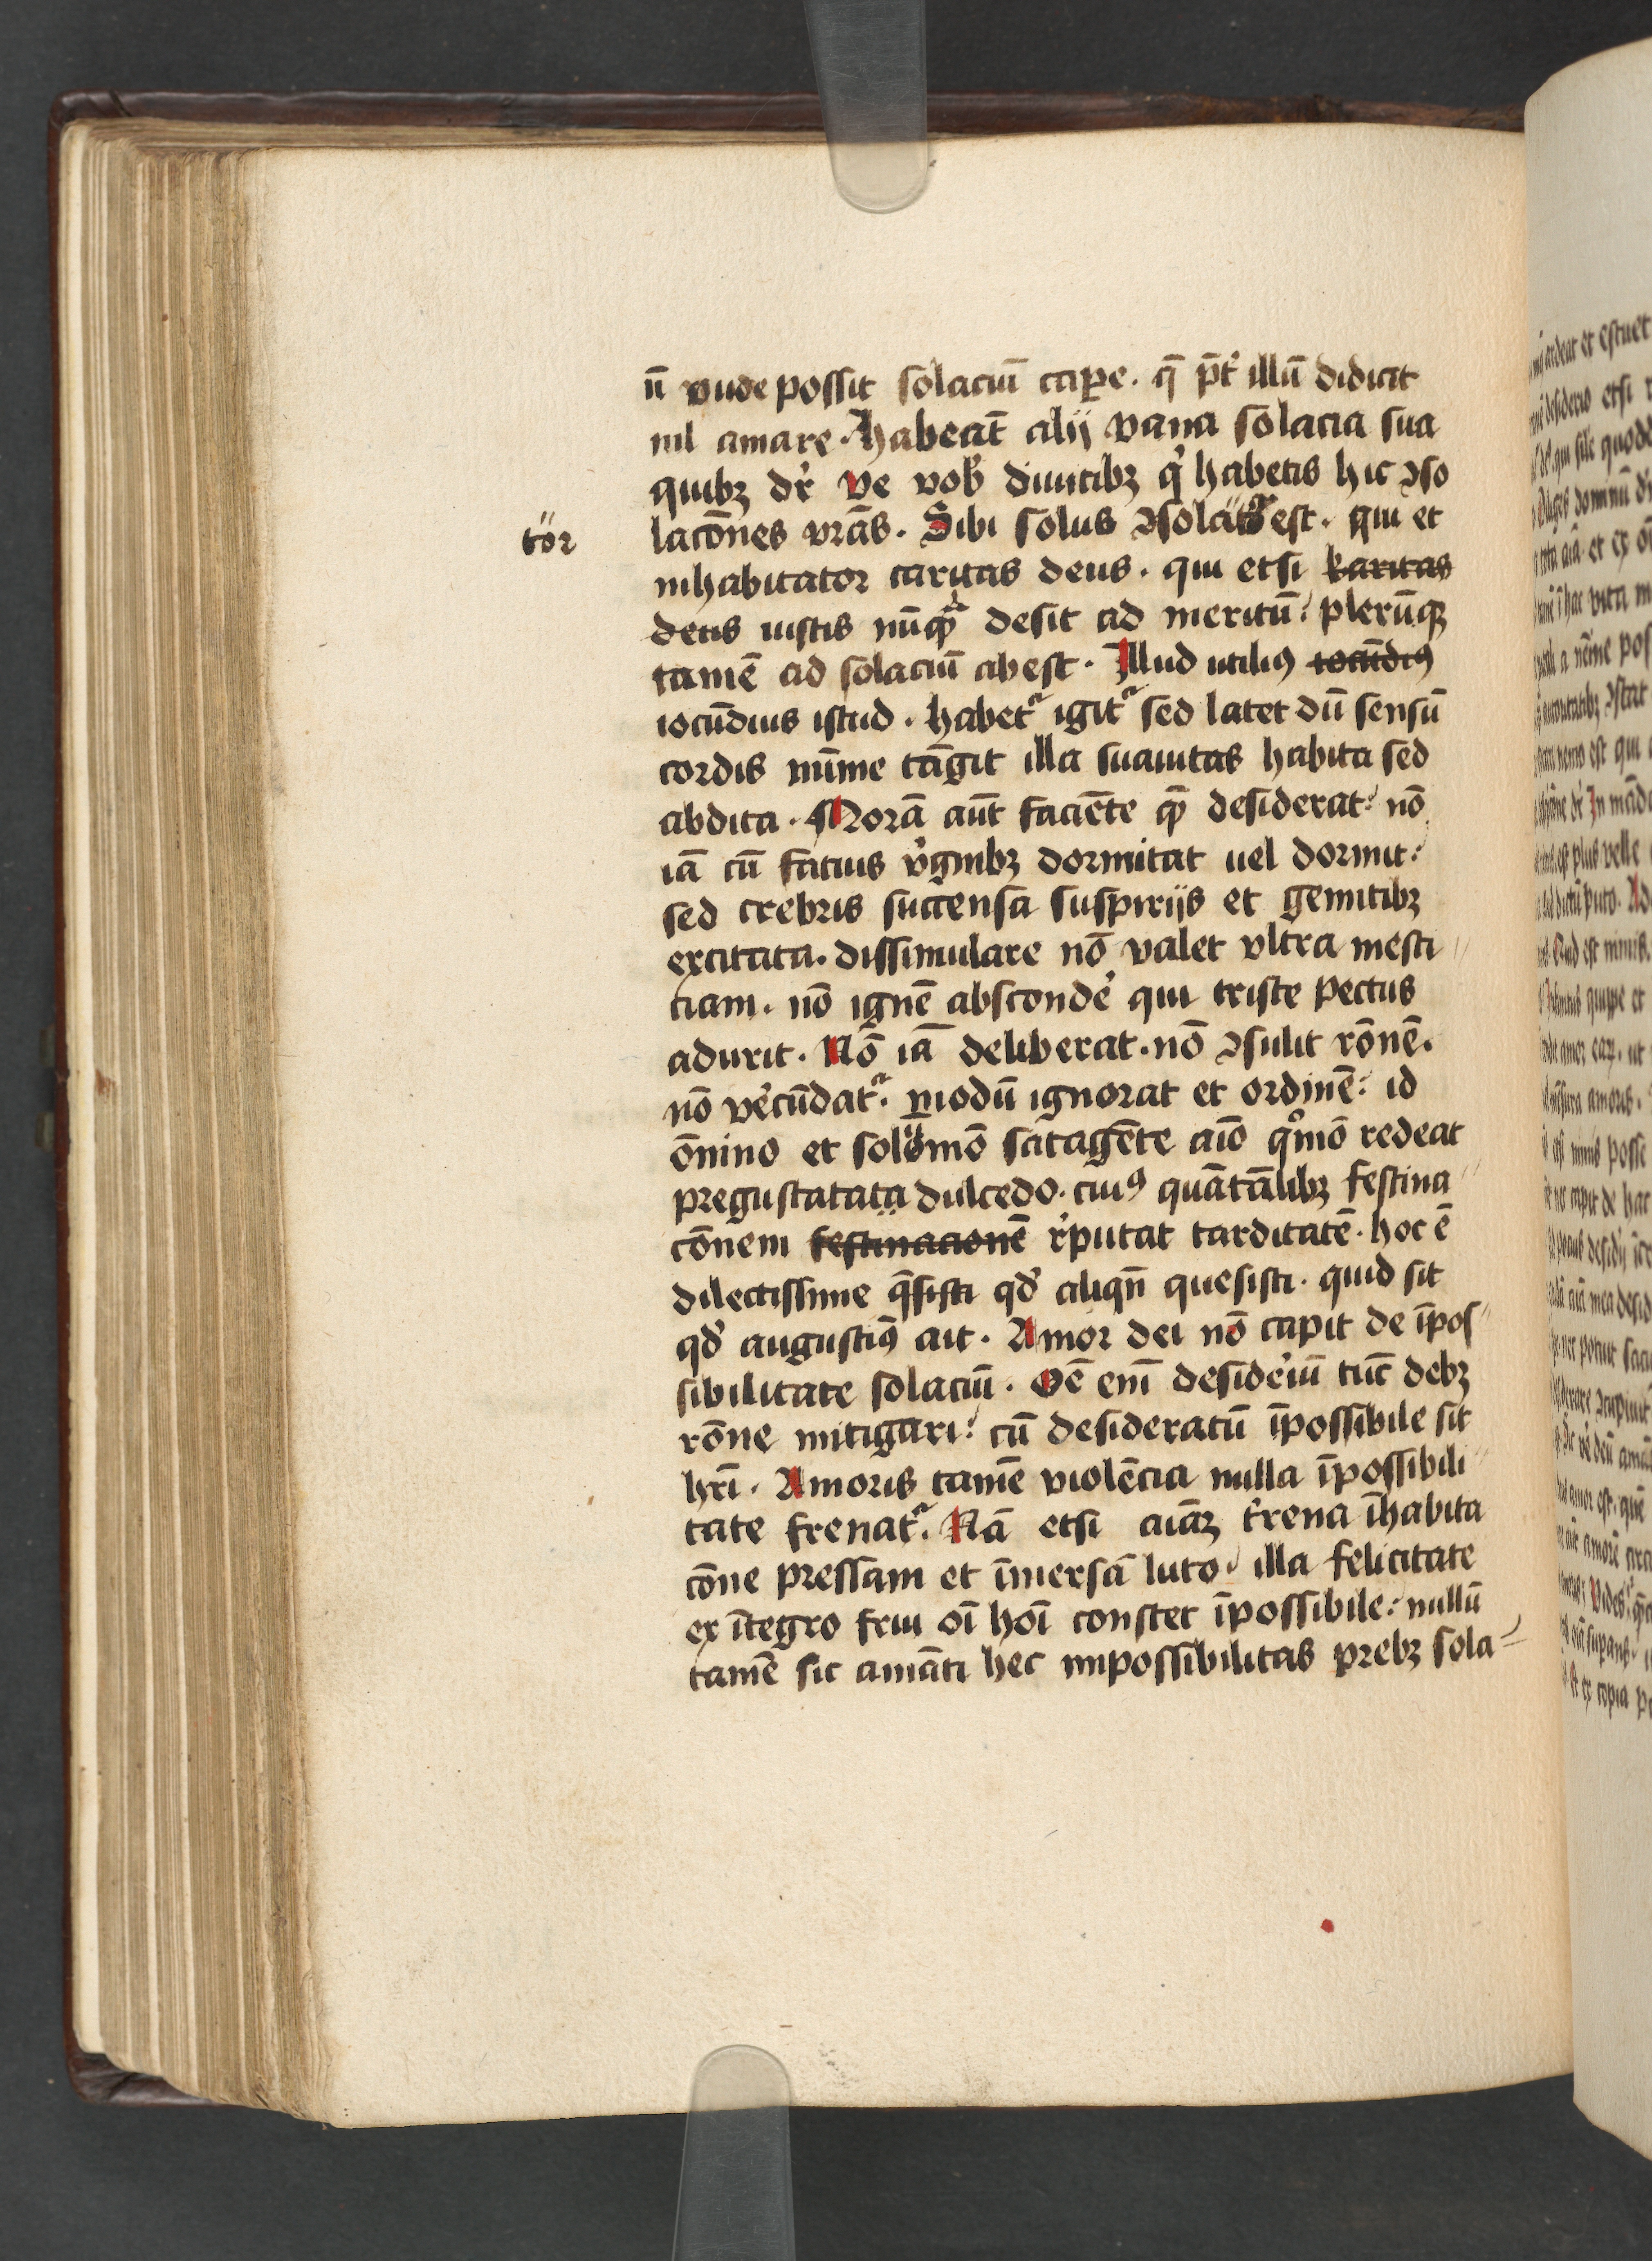 n̄ vnde possit solaciū cap̲e . q̄ p̄t̓ illū didicit
nil amare . Habeāt alij vana solacia sua
quibꝫ dr̄ Ve vob̓ diuitibꝫ q̓ habetis hic ꝯso
lacōnes vrās . Sibi solus ꝯsolatᷣ est . qui et
tör
inhabitator caritas deus . qui etsi karitas
deus iustis nūqᷓ desit ad meritū : plerūqꝫ
tamē ad solaciū abest . Illud utiliꝰ iocūdiꝰ
iocūdius istud . habetᷣ igitᷣ sed latet dū sensū
cordis mīme tāgit illa suauitas habita sed
abdita . Morā aūt faciēte qᷓ desiderat : nō
iā cū fatuis v̓ginibꝫ dormitat uel dormit :
sed crebris succensa suspirijs et gemitibꝫ
excitata . dissimulare nō valet vltra mesti
ciam . nō ignē absconde̓ qui triste pectus
adurit . Nō iā deliberat . nō ꝯsulit rōnē .
nō ve̓cūdatᷣ . modū ignorat et ordinē : id
ōnino et solömō satagēte aīo qͦmō redeat
pregustatata dulcedo . cuiꝰ quātālibꝫ festina
cōnem festinacionē r̓putat tarditatē . hoc ē
dilectissime q̄sisti qd̓ aliqn̄ quesisti . quid sit
qd̓ augustiꝰ ait . Amor dei nō capit de īpos
sibilitate solaciū . Oē eni̅ deside̓iū tūc debꝫ
rōne mitigari : cū desideratū īpossibile sit
hr̄i . Amoris tamē violēcia nulla īpossibili
tate frenatᷣ . Nā etsi aīaꝫ t̓rena īhabita
cōne pressam et īmersā luto . illa felicitate
ex ītegro frui oī hoī constet īpossibile : nullū
tamē sic amāti hec impossibilitas prebꝫ sola=